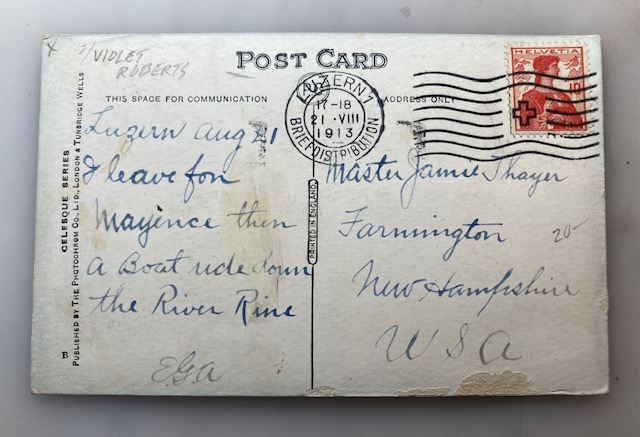 x
s/VIOLET
ROBERTS
POST CARD
THIS SPACE FOR COMMUNICATION
ADDRESS ONLY
HELVETIA
10
LUZERN 1
17-18
21.VIII
1913
BRIEFDISTRIBUTION
CELESQUE SERIES
PUBLISHED BY THE PHOTOCHROM CO., LTD., LONDON & TUNBRIDGE WELLS
B
Luzern Aug 21
I leave for
Mayence then
a Boat ride down
the River Rine
EGA
PRINTED IN ENGLAND
Master Jamie Thayer
Farmington
New Hampshire
U S A
20-